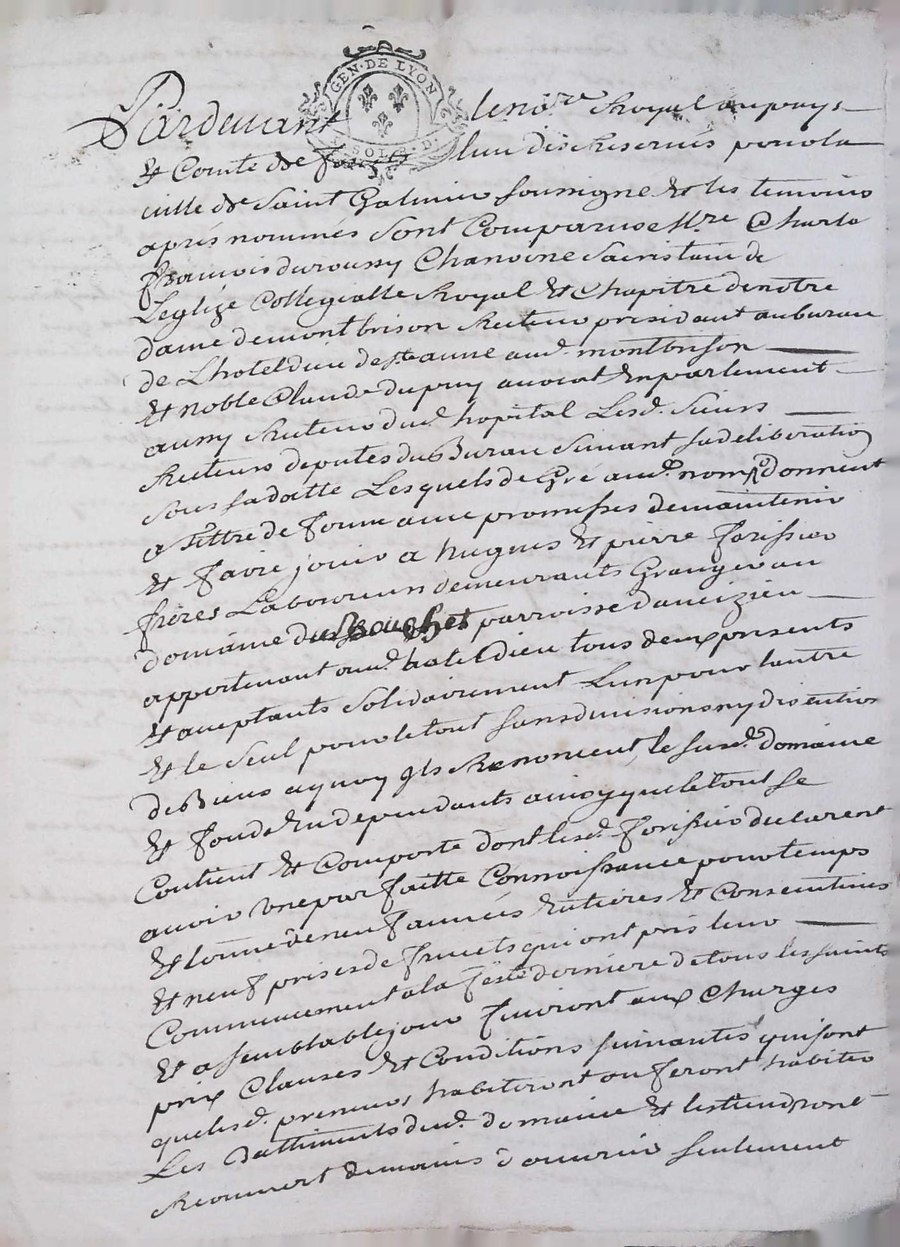 GEN · DE LYON
SOLS · D
Pardevant le no.re Royal au pays
Et Comté de forest lun des Reservés pour la
ville de Saint Galmier soussigné Et les temoins
aprés nommés Sont Comparus Mre Charle
francois duroussy Chanoine Sacristain de
Leglize Collegialle Royal Et Chapitre de notre
dame de montbrison Recteur président au bureau
de Lhoteldieu de ste anne aud. montbrison
Et noble Claude dupuy avocat En parlement
aussy Recteur dud. hopital Lesd. Sieurs
Recteurs deputés du Bureau Suivant sa deliberation
sous sa datte Lesquels de Gré aud. nom donnent
a tittre de ferme avec promesses de maintenir
Et faire jouir a hugues Et pierre forissier
freres Laboureurs demeurants Granger au
domaine du Bouchet parroisse daveizieu
appartenant aud. hotel Dieu tous deux presents
Et aceptants Solidairement Lun pour lautre
Et le Seul pour le tout sans division ny discution
de Biens a quoy ils Renoncent, le susd. domaine
Et fonds En dependants ainsy que le tout se
Contient Et Comporte dont lesd. forissier declarent
avoir une parfaitte Connoissance pour temps
Et terme de neuf années Entieres Et Consecutives
Et neuf prises de fruits qui ont pris leur
Commencement a la feste derniere de tous les saints
Et a semblable jour finiront aux Charges
prix Clauses Et Conditions suivantes qui sont
que lesd. preneurs habiteront ou feront habiter
Les Battiments dud. domaine Et les tiendront
Recouvert de mains d'ouvrier seulement